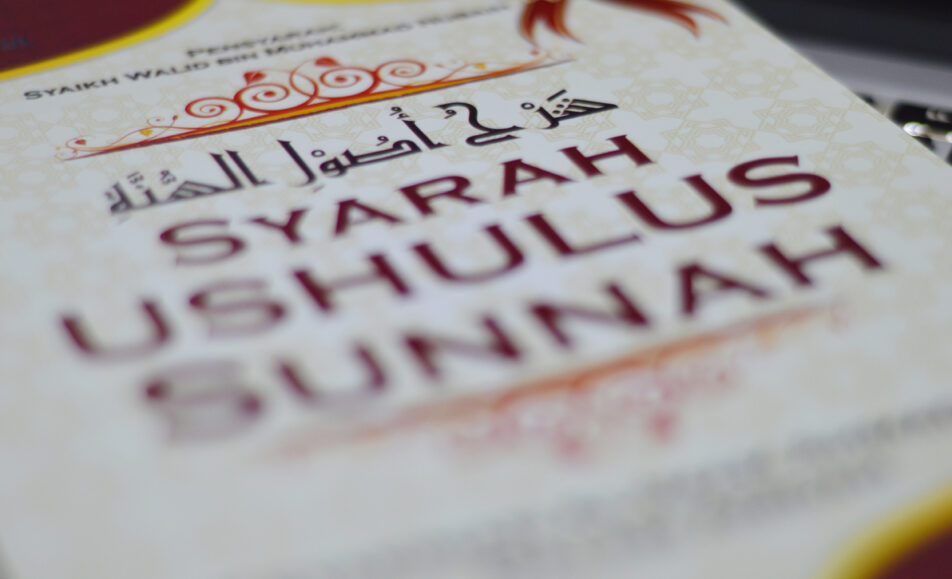 PENSYARAH:
SYAIKH WALID BIN MUHAMMAD NUBAIH
شَرْحُ أُصُوْلِ السُّنَّةِ
SYARAH
USHULUS
SUNNAH